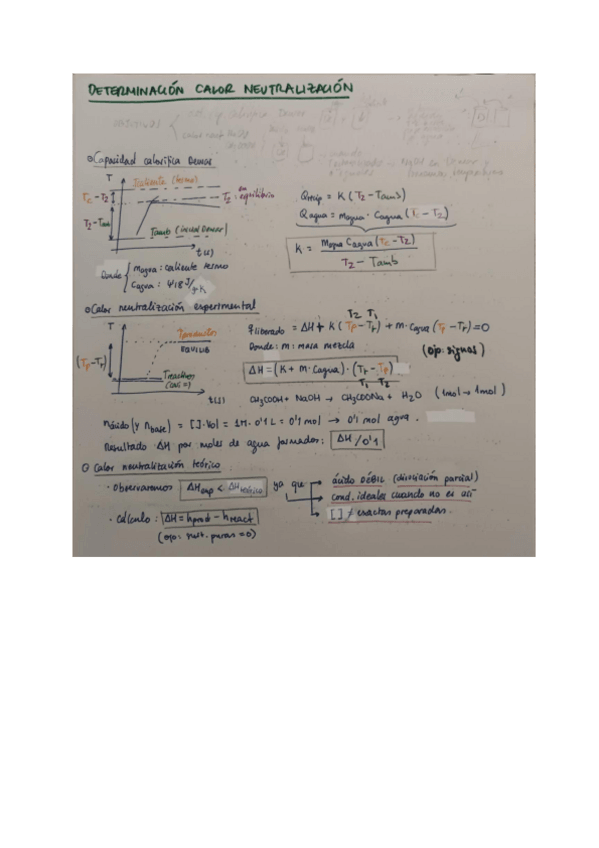 DETERMINACIÓN CALOR NEUTRALIZACIÓN
Capacidad calorífica Dewar
T
T caliente (termo)
Tc - T2
T2 : en equilibrio
T2 - Tamb
Tamb (inicial Dewar)
t (s)
Donde { magua : caliente termo
Cagua : 4'18 J/g·K
Qrecip = K (T2 - Tamb)
Qagua = magua · Cagua (Tc - T2)
K = magua Cagua (Tc - T2) / T2 - Tamb
Calor neutralización experimental
T
Tproductos
EQUILIB
(Tp - Tr)
Treactivos
t (s)
T2 T1
q liberado = ΔH + K (Tp - Tr) + m · Cagua (Tp - Tr) = 0
Donde : m : masa mezcla
(ojo: signos)
ΔH = (K + m · Cagua) · (Tr - Tp)
T1 T2
CH3COOH + NaOH → CH3COONa + H2O (1mol → 1mol)
nácido (y nbase) = [ ] · Vol = 1M · 0'1 L = 0'1 mol → 0'1 mol agua .
Resultado ΔH por moles de agua formados : ΔH / 0'1
Calor neutralización teórico
· Observaremos ΔHexp < ΔHteórico ya que
→ ácido DÉBIL (disociación parcial)
→ cond. ideales cuando no es así
→ [ ] ≠ exactas preparadas .
· Cálculo : ΔH = hprod - hreact
(ojo: sust. puras = 0)